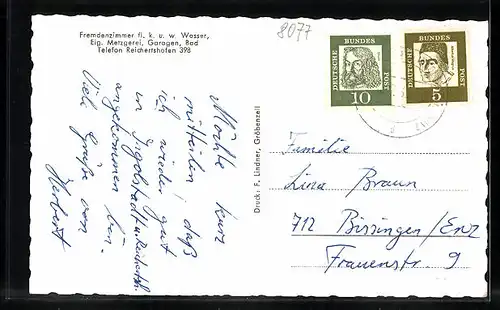 Fremdenzimmer fl. k. u. w. Wasser,
Eig. Metzgerei, Garagen, Bad
Telefon Reichertshofen 398
8077
Möchte kurz
mitteilen, daß
ich wieder gut
in Ingolstadt
angekommen bin.
Viele Grüße von
Herbert
Druck: F. Lindner, Gröbenzell
DEUTSCHE BUNDESPOST
10
DEUTSCHE BUNDESPOST
5
Familie
Lina Braun
712 Bissingen/Enz
Frauenstr. 9